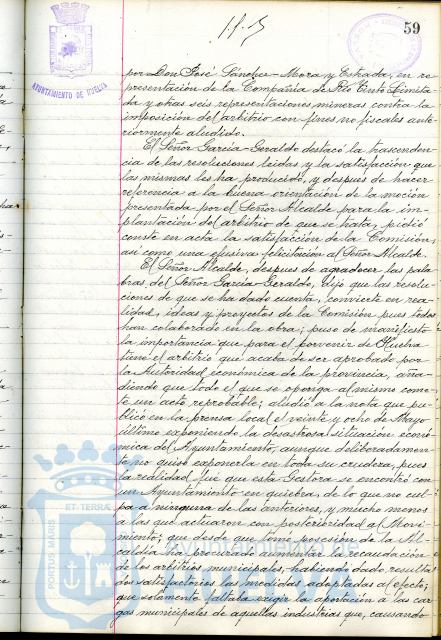 59
AYUNTAMIENTO DE HUELVA
por Don José Sánchez-Mora y Estrada, en re
presentación de la Compañía de Río Tinto Limita-
da y otras seis representaciones mineras contra la
imposición del arbitrio con fines no fiscales ante-
riormente aludido.
El Señor García-Geraldo destacó la trascenden
cia de las resoluciones leidas y la satisfacción que
las mismas les ha producido, y despues de hacer
referencia a la buena orientación de la moción
presentada por el Señor Alcalde para la im-
plantación del arbitrio de que se trata, pidió
conste en acta la satisfacción de la Comisión,
así como una efusiva felicitación al Señor Alcalde.
El Señor Alcalde, despues de agradecer las pala
bras del Señor García Geraldo, dijo que las resolu-
ciones de que se ha dado cuenta, convierte en rea-
lidad, ideas y proyectos de la Comisión pues todos
han colaborado en la obra; puso de manifiesto
la importancia que para el porvenir de Huelva
tiene el arbitrio que acaba de ser aprobado por
la Autoridad económica de la provincia, aña-
diendo que todo el que se oponga al mismo come-
te un acto reprobable; aludió a la nota que pu-
blicó en la prensa local el veinte y ocho de Mayo
último exponiendo la desastrosa situación econó-
mica del Ayuntamiento, aunque deliberadamen-
te no quiso exponerla en toda su crudeza, pues
la realidad fue que esta Gestora se encontró con
un Ayuntamiento en quiebra, de lo que no cul-
pa a ninguna de las anteriores, y mucho menos
a las que actuaron con posterioridad al Movi-
miento; que desde que tomó posesión de la Al-
caldía ha procurado aumentar la recaudación
de los arbitrios municipales, habiendo dado resulta-
dos satisfactorios las medidas adoptadas al efecto;
que solamente faltaba exigir la aportación a las car
gas municipales de aquellas industrias que, causando-
PORTUS MARIS
ET TERRÆ